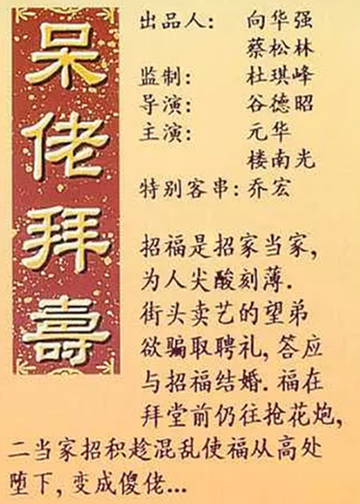 呆佬拜壽
出品人： 向华强
蔡松林
监制： 杜琪峰
导演： 谷德昭
主演： 元华
楼南光
特别客串: 乔宏
招福是招家当家,
为人尖酸刻薄.
街头卖艺的望弟
欲骗取聘礼, 答应
与招福结婚. 福在
拜堂前仍往抢花炮,
二当家招积趁混乱使福从高处
堕下, 变成傻佬...